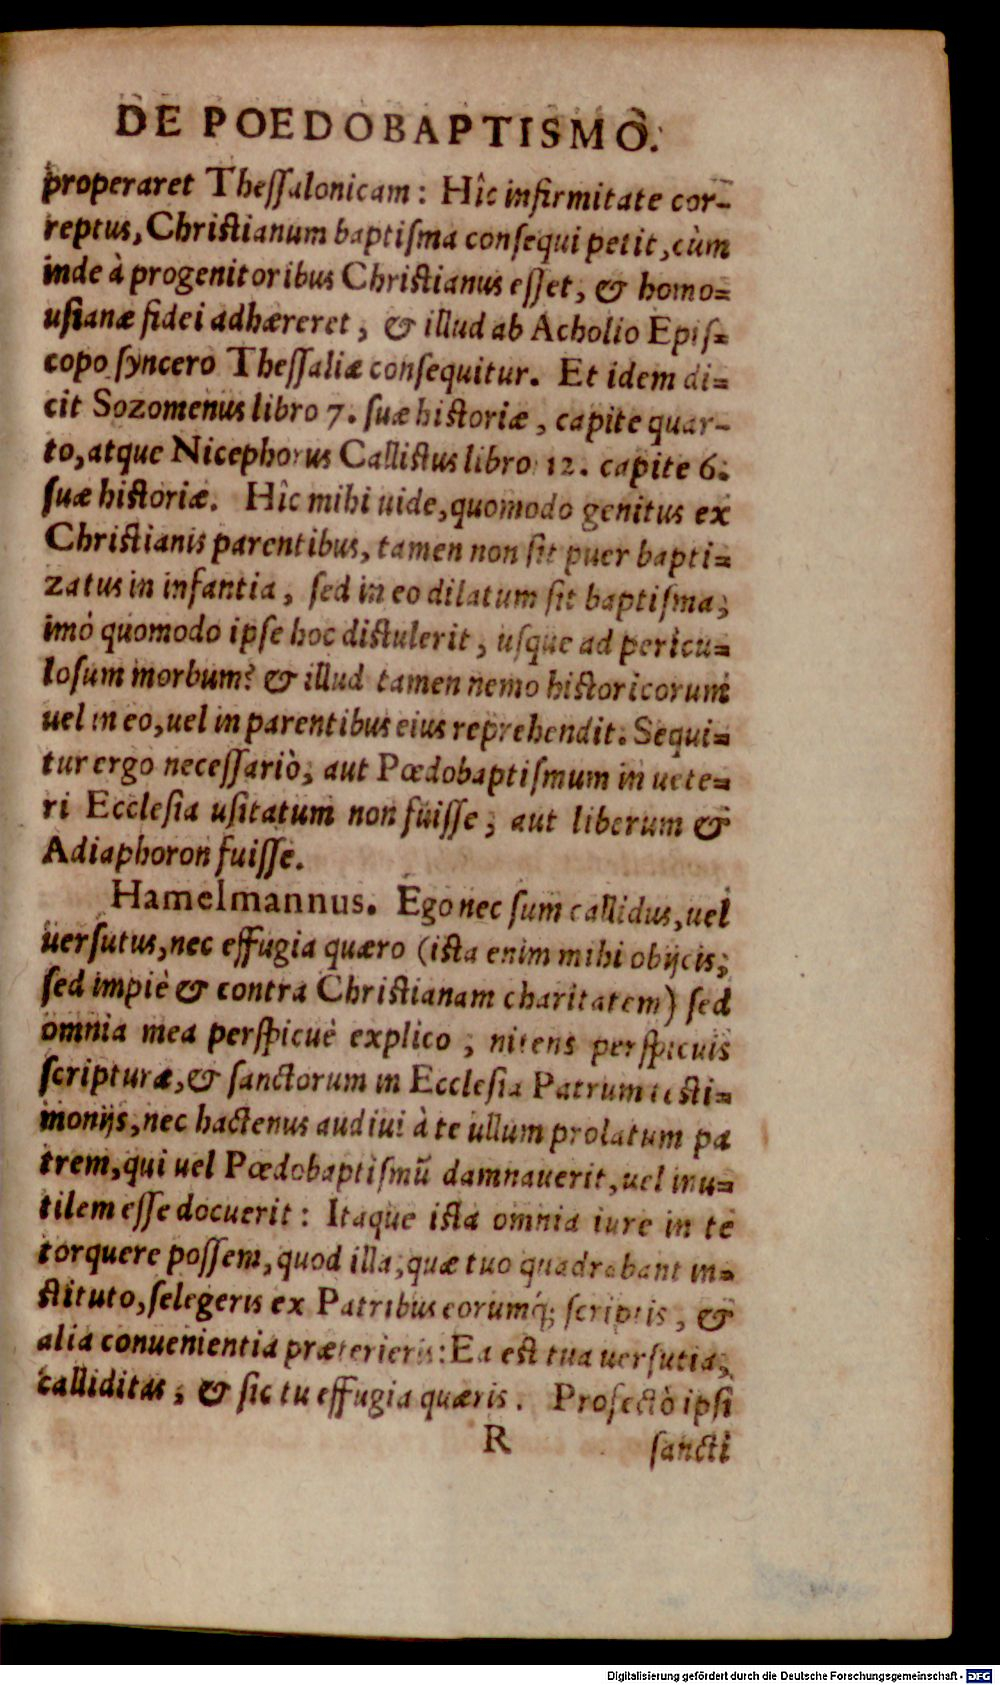 DE POEDOBAPTISMO.
properaret Thessalonicam: Hîc infirmitate cor-
reptus, Christianum baptisma consequi petit, cùm
inde à progenitoribus Christianus esset, & homo-
usianæ fidei adhæreret, & illud ab Acholio Epis-
copo syncero Thessaliæ consequitur. Et idem di-
cit Sozomenus libro 7. suæ historiæ, capite quar-
to, atque Nicephorus Callistus libro 12. capite 6.
suæ historiæ. Hîc mihi uide, quomodo genitus ex
Christianis parentibus, tamen non sit puer bapti-
zatus in infantia, sed in eo dilatum sit baptisma,
imò quomodo ipse hoc distulerit, usque ad pericu-
losum morbum? & illud tamen nemo historicorum
uel in eo, uel in parentibus eius reprehendit. Sequi-
tur ergo necessariò, aut Pœdobaptismum in uete-
ri Ecclesia usitatum non fuisse, aut liberum &
Adiaphoron fuisse.
Hamelmannus. Ego nec sum callidus, uel
uersutus, nec effugia quæro (ista enim mihi obijcis,
sed impiè & contra Christianam charitatem) sed
omnia mea perspicuè explico, nitens perspicuis
scripturæ, & sanctorum in Ecclesia Patrum testi-
monijs, nec hactenus audiui à te ullum prolatum pa
trem, qui uel Pœdobaptismũ damnauerit, uel inu-
tilem esse docuerit: Itaque ista omnia iure in te
torquere possem, quod illa, quæ tuo quadrabant in-
stituto, selegeris ex Patribus eorumq́; scriptis, &
alia conuenientia præterieris: Ea est tua uersutia,
calliditas, & sic tu effugia quæris. Profectò ipsi
R sancti
Digitalisierung gefördert durch die Deutsche Forschungsgemeinschaft - DFG